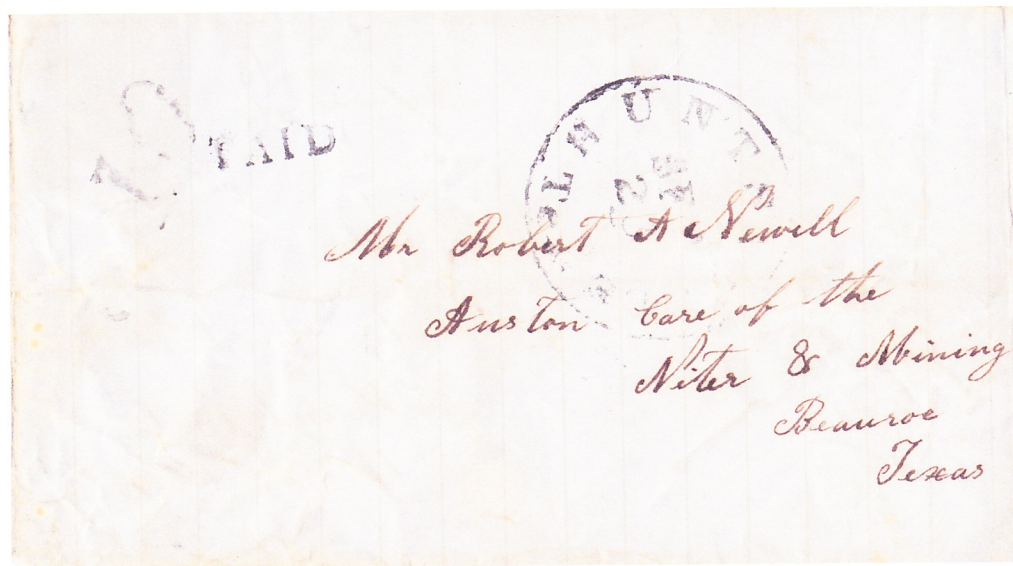 PAID
10
HUNT
2
Mr Robert A Newell
Auston Care of the
Niter & Mining
Beauroe
Texas